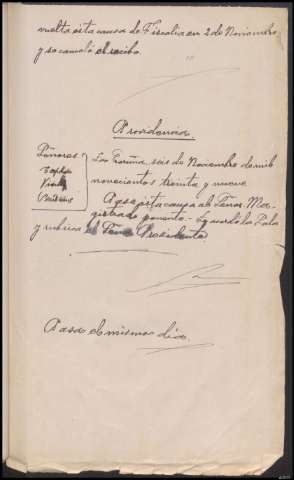 vuelta esta causa de Fiscalia en 2 de Noviembre
y se canceló el recibo.
Providencia
Señores
La Coruña, seis de Noviembre de mil
novecientos treinta y nueve
Pase esta causa al Señor Ma-
gistrado ponente. Lo acordó la Sala
y rubrica el Señor Presidente
Pasó el mismo dia.